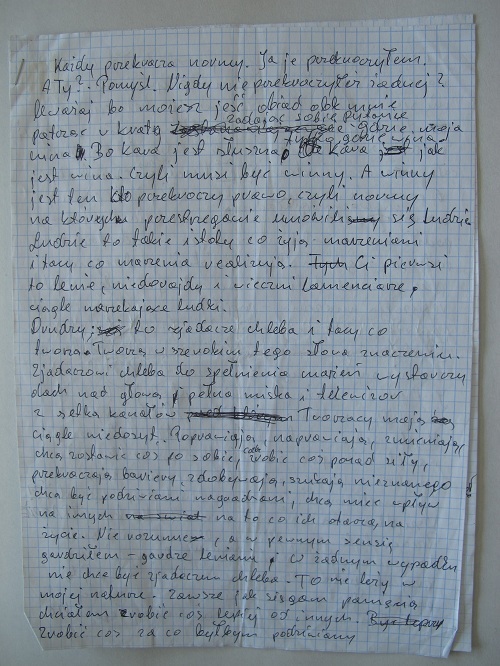 Każdy przekracza normy. Ja je przekroczyłem.
A Ty? Pomyśl. Nigdy nie przekroczyłeś żadnej?
Uważaj bo możesz jeść obiad obok mnie
patrząc w kraty zadając sobie pytanie
gdzie moja
wina. Bo kara jest słuszna, bo kara jak
jest wina. Czyli musi być winny. A winny
jest ten kto przekroczy prawo, czyli normy
na których przestrzeganie umówili się ludzie
Ludzie to takie istoty co żyją marzeniami
i tacy co marzenia realizują. Ci pierwsi
to lenie, niedorajdy i wieczni lamenciarze,
ciągle narzekające ludki.
Drudzy, to zjadacze chleba i tacy co
tworzą. Tworzą w szerokim tego słowa znaczeniu.
Zjadaczowi chleba do spełnienia marzeń wystarczy
dach nad głową, pełna miska i telewizor
z setką kanałów Tworzący mają
ciągle niedosyt. Poprawiają, naprawiają, zmieniają,
chcą zostawić coś po sobie, chcą zrobić coś ponad siły,
przekraczają bariery, zdobywają, szukają nieznanego
chcą być podziwiani nagradzani, chcą mieć wpływ
na innych na to co ich otacza, na
życie. Nie rozumiem, a w pewnym sensie
gardziłem - gardzę leniami, i w żadnym wypadku
nie chcę być zjadaczem chleba. To nie leży w
mojej naturze. Zawsze jak sięgam pamięcią
chciałem zrobić coś lepiej od innych.
Zrobić coś za co byłbym podziwiany